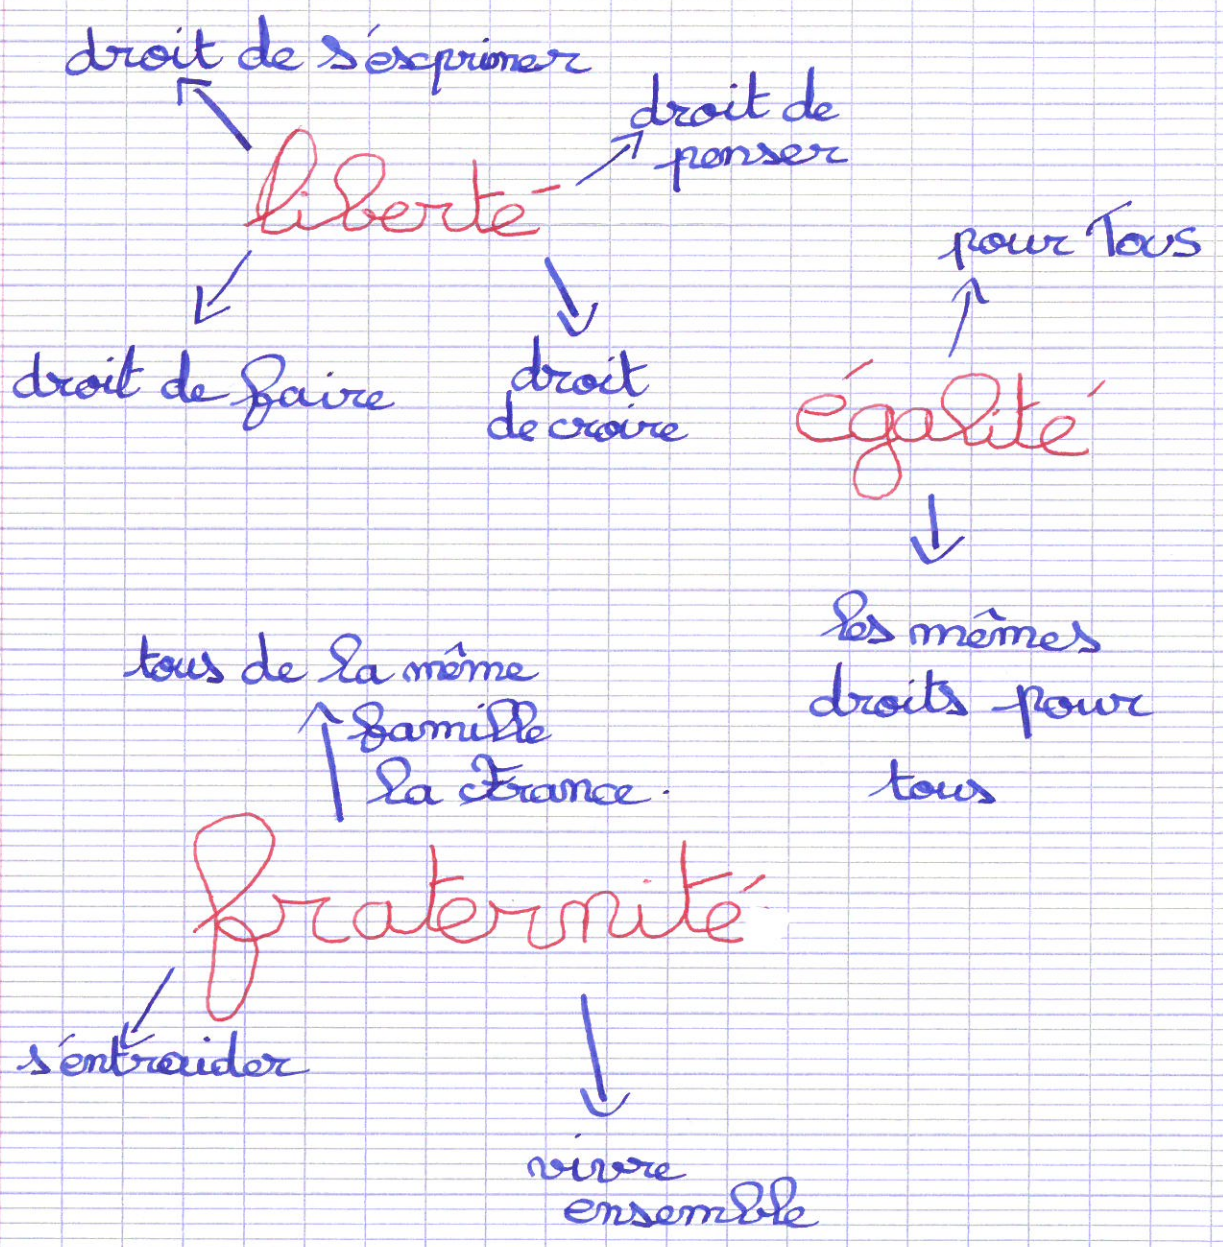 droit de s'exprimer
droit de
penser
liberté
pour Tous
droit de faire
droit
de croire
égalité
les mêmes
droits pour
tous
tous de la même
famille
la France.
fraternité
s'entraider
vivre
ensemble